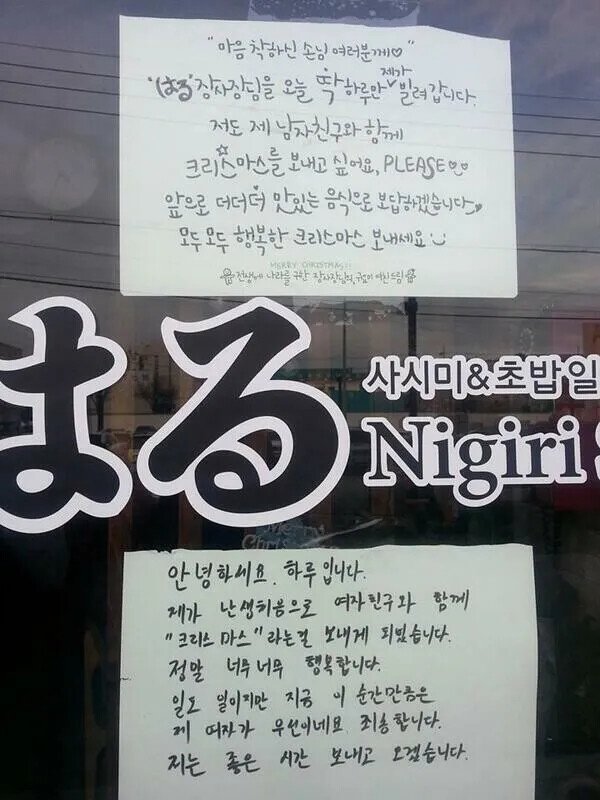 "마음 착하신 손님 여러분께♡"
"はる" 장사장님을 오늘 딱 하루만 제가 빌려 갑니다.
저도 제 남자친구와 함께
크리스마스를 보내고 싶어요, PLEASE
앞으로 더더더 맛있는 음식으로 보답하겠습니다
모두모두 행복한 크리스마스 보내세요
MERRY CHRISTMAS!!
전생에 나라를 구한 장사장님의 여친드림
はる
사시미&초밥일
Nigiri S
Merry
Chris
안녕하세요. 하루입니다.
제가 난생처음으로 여자친구와 함께
"크리스마스"라는걸 보내게 되었습니다.
정말 너무너무 행복합니다.
일도 일이지만 지금 이 순간만큼은
제 여자가 우선이네요 죄송합니다.
저는 좋은 시간 보내고 오겠습니다.